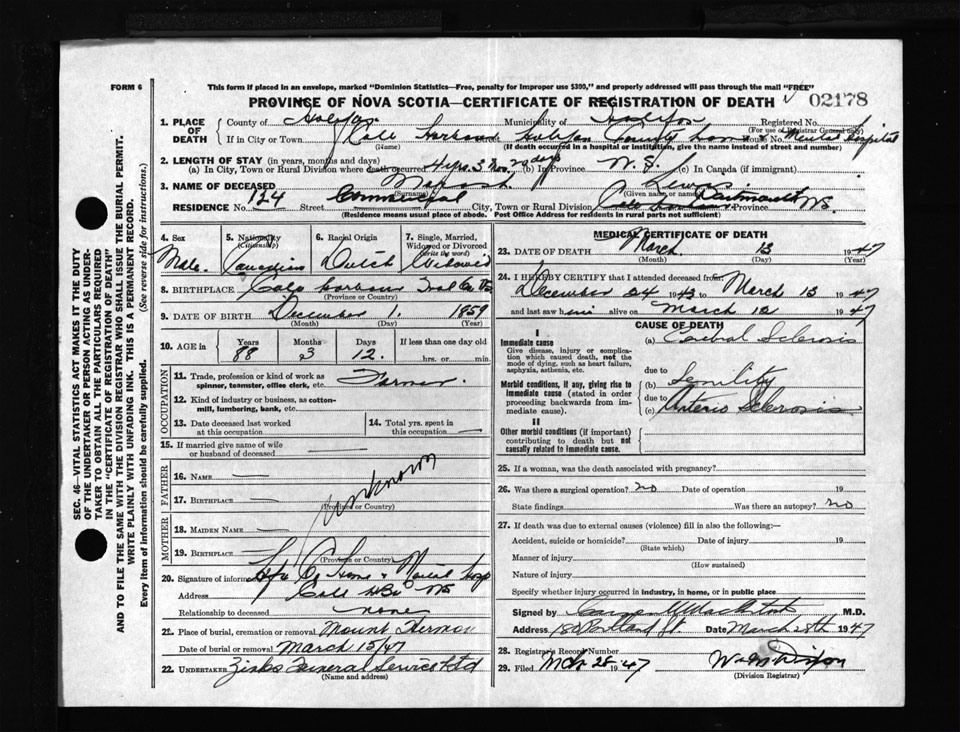 FORM 6
This form if placed in an envelope, marked "Dominion Statistics—Free, penalty for improper use $300," and properly addressed will pass through the mail "FREE"
PROVINCE OF NOVA SCOTIA—CERTIFICATE OF REGISTRATION OF DEATH 02178
1. PLACE OF DEATH
County of Halifax Municipality of Halifax Registered No.
(For use of Registrar General only)
If in City or Town Cole Harbour Street Halifax County Home House No. & Mental Hospital
(Name) (If death occurred in a hospital or institution, give name instead of street and number)
2. LENGTH OF STAY (in years, months and days)
(a) In City, Town or Rural Division where death occurred 4 yrs. 3 mos. days (b) In Province N.S. (c) In Canada (if immigrant)
3. NAME OF DECEASED
(Surname) (Given name or names)
RESIDENCE No. 124 Street Commercial City, Town or Rural Division Cole Dartmouth Province N.S.
(Residence means usual place of abode. Post Office Address for residents in rural parts not sufficient)
4. Sex Male
5. Nationality (Citizenship) Canadian
6. Racial Origin Dutch
7. Single, Married, Widowed or Divorced (Write the word) Widowed
8. BIRTHPLACE Cole Harbour
(Province or Country)
9. DATE OF BIRTH December 1. 1859
(Month) (Day) (Year)
10. AGE in Years 88 Months 3 Days 12. If less than one day old hrs. or min.
OCCUPATION
11. Trade, profession or kind of work as spinner, teamster, office clerk, etc. Farmer.
12. Kind of industry or business, as cotton-mill, lumbering, bank, etc.
13. Date deceased last worked at this occupation
14. Total yrs. spent in this occupation
15. If married give name of wife or husband of deceased
FATHER
16. NAME
17. BIRTHPLACE
(Province or Country)
Unknown
MOTHER
18. MAIDEN NAME
19. BIRTHPLACE
(Province or Country)
20. Signature of informant Hfx Co Home & Hosp
Address Cole Hbr NS
Relationship to deceased none
21. Place of burial, cremation or removal Mount Hermon
Date of burial or removal March 15/47
22. UNDERTAKER Zinks Funeral Service Ltd
(Name and address)
MEDICAL CERTIFICATE OF DEATH
23. DATE OF DEATH March 13 1947
(Month) (Day) (Year)
24. I HEREBY CERTIFY that I attended deceased from
December 24 1943 to March 13 1947
and last saw him alive on March 12 1947
CAUSE OF DEATH
I
Immediate cause
Give disease, injury or complication which caused death, not the mode of dying, such as heart failure, asphyxia, asthenia, etc.
(a) Cerebral Sclerosis
due to
Morbid conditions, if any, giving rise to immediate cause (stated in order proceeding backwards from immediate cause)
(b) Senility
due to
(c) Arterio Sclerosis
II
Other morbid conditions (if important) contributing to death but not causally related to immediate cause.
25. If a woman, was the death associated with pregnancy?
26. Was there a surgical operation? no Date of operation 19
State findings Was there an autopsy? no
27. If death was due to external causes (violence) fill in also the following:—
Accident, suicide or homicide? Date of injury 19
(State which)
Manner of injury
(How sustained)
Nature of injury
Specify whether injury occurred in industry, in home, or in public place
Signed by M.D.
Address 180 Portland St. Date March 28th 1947
28. Registrar's Record Number
29. Filed Mch 28 1947
(Division Registrar)
SEC. 46—VITAL STATISTICS ACT MAKES IT THE DUTY
OF THE UNDERTAKER OR PERSON ACTING AS UNDER-
TAKER TO OBTAIN ALL THE PARTICULARS REQUIRED
IN THE "CERTIFICATE OF REGISTRATION OF DEATH"
AND TO FILE THE SAME WITH THE DIVISION REGISTRAR WHO SHALL ISSUE THE BURIAL PERMIT.
WRITE PLAINLY WITH UNFADING INK. THIS IS A PERMANENT RECORD.
Every item of information should be carefully supplied. (See reverse side for instructions.)